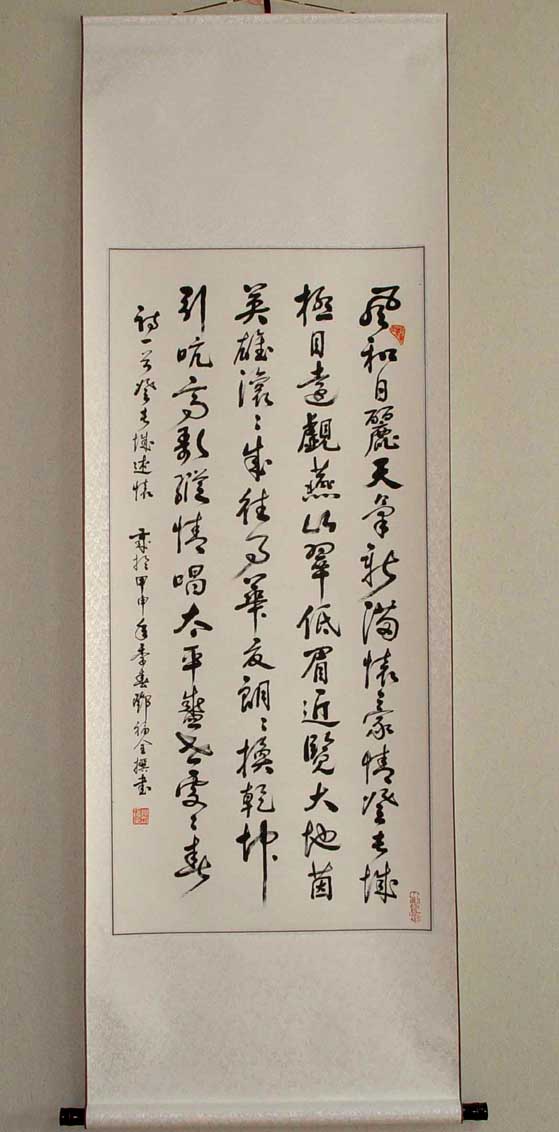 風和日麗天氣新滿懷豪情登長城
極目遠觀燕山翠低眉近覽大地茵
英雄滾〻成往事華夏朗〻換乾坤
引吭高歌縱情唱太平盛世處〻春
詩一首登長城述懷 歲於甲申年季春鄧福全撰書